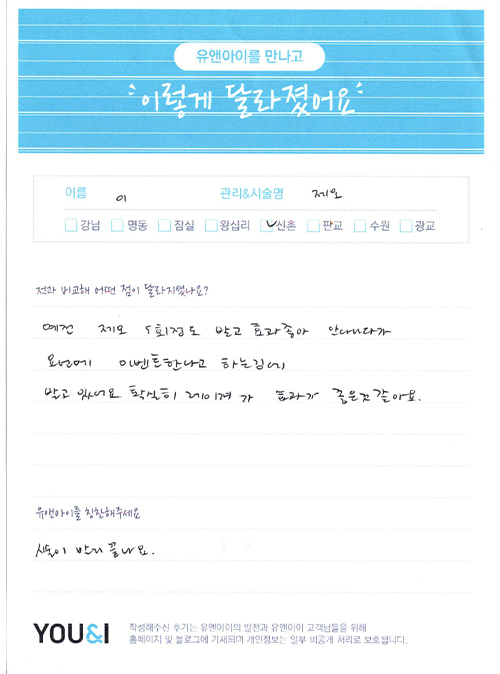 유앤아이를 만나고
이렇게 달라졌어요
이름 이 관리&시술명 제모
강남 명동 잠실 왕십리 신촌 판교 수원 광교
전과 비교해 어떤 점이 달라지셨나요?
예전 제모 5회정도 받고 효과좋아 안나니다가
요번에 이벤트한다고 하는김에
받고 있어요 확실히 레이져가 효과가 좋은것 같아요.
유앤아이를 칭찬해주세요
시술이 빨리 끝나요.
YOU&I
작성해주신 후기는 유앤아이의 발전과 유앤아이 고객님들을 위해
홈페이지 및 블로그에 기재되며 개인정보는 일부 비공개 처리로 보호됩니다.